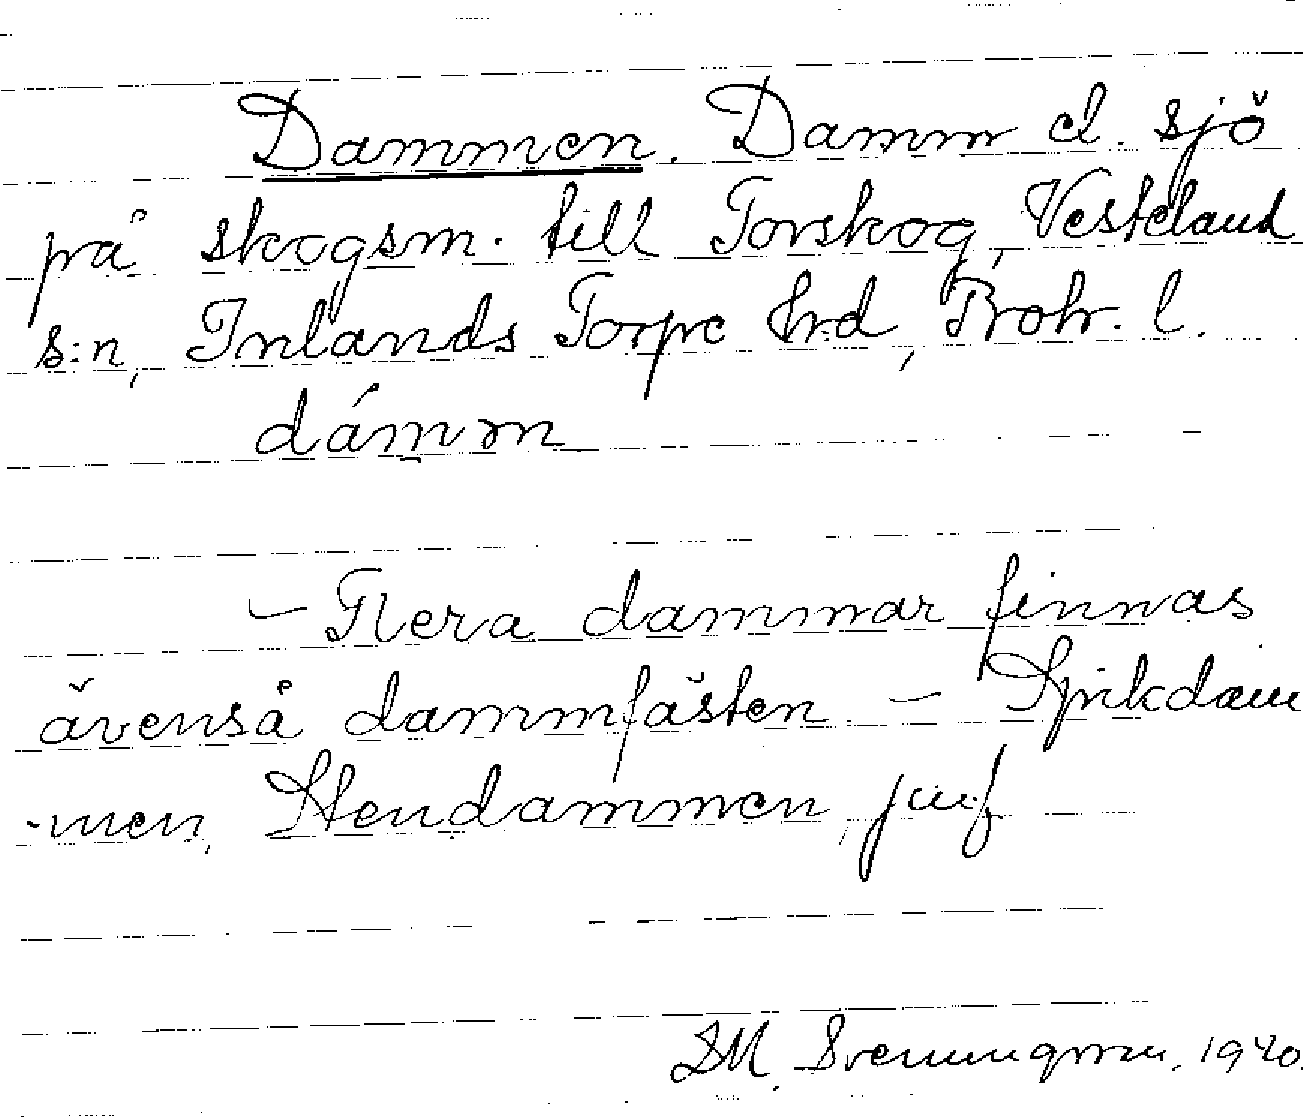 Dammen. Damm el. sjö
på skogsm. till Torskog, Vesterland
s:n, Inlands Torpe hrd, Bohr. l.
dámm
– Flera dammar finnas
ävenså dammfästen – Spikdam
-men, Stendammen, jmf
SM. Svenungsson. 1920.